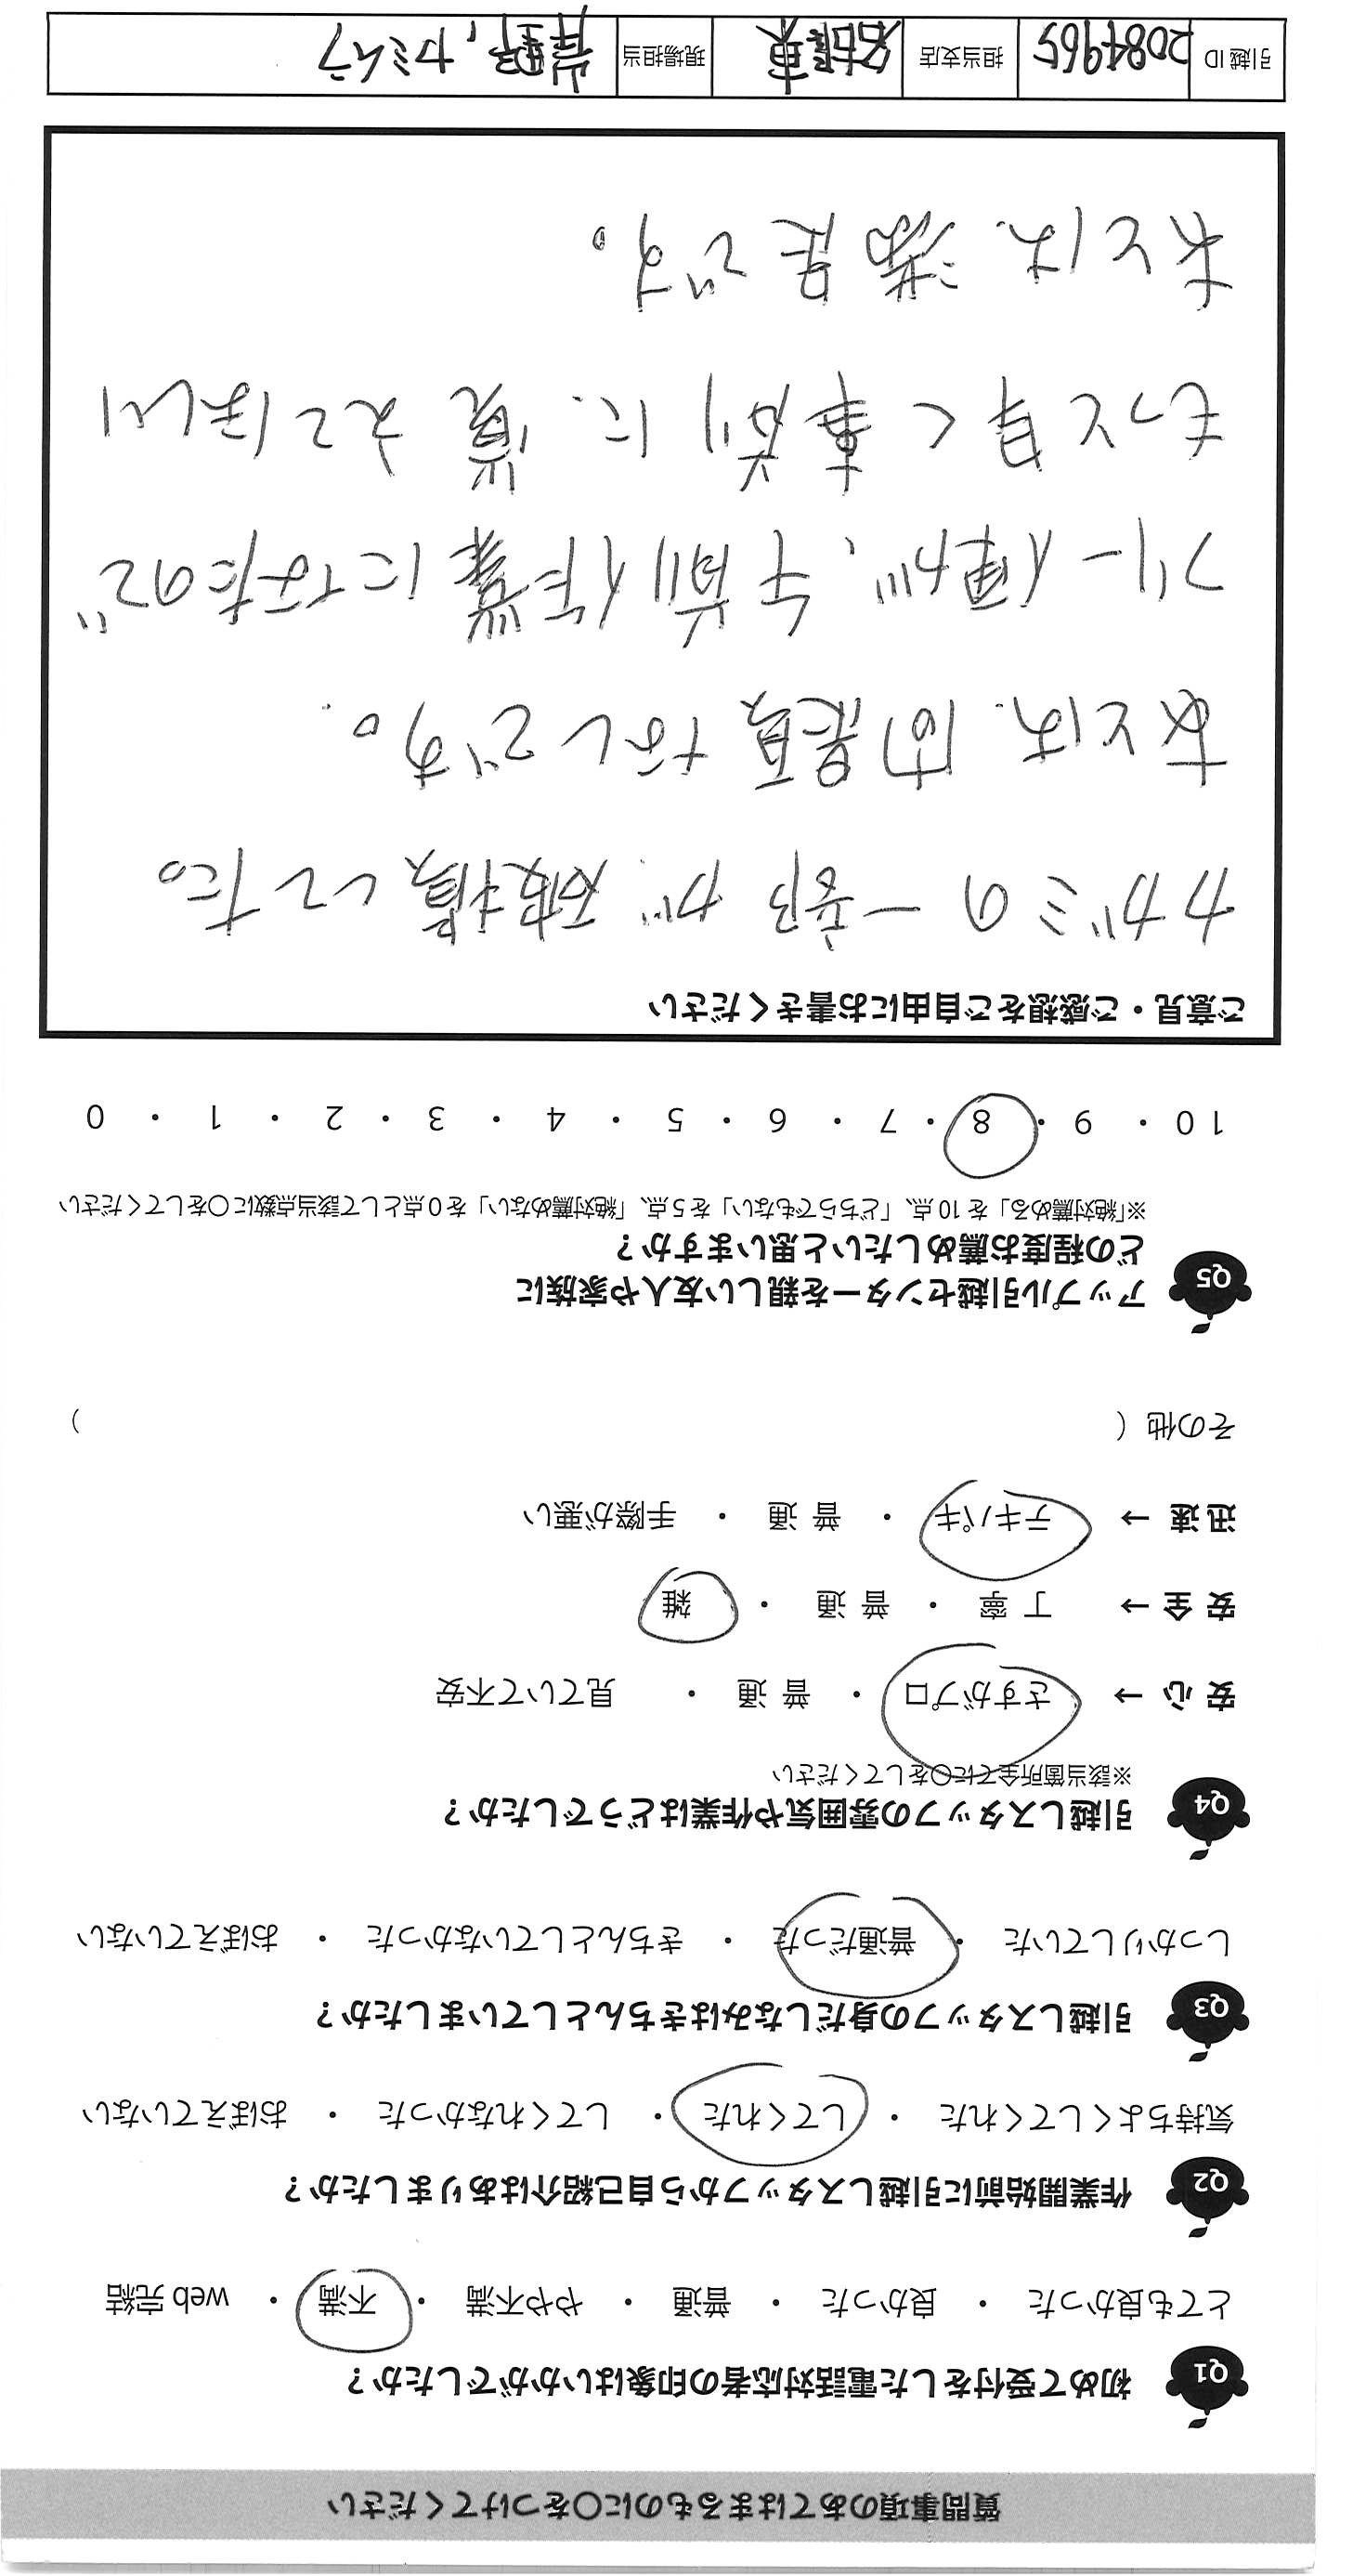 質問事項のあてはまるものに○をつけてください
Q1 初めて受付をした電話対応者の印象はいかがでしたか？
とても良かった ・ 良かった ・ 普通 ・ やや不満 ・ 不満 ・ web 完結
Q2 作業開始前に引越しスタッフから自己紹介はありましたか？
気持ちよくしてくれた ・ してくれた ・ してくれなかった ・ おぼえていない
Q3 引越しスタッフの身だしなみはきちんとしていましたか？
しっかりしていた ・ 普通だった ・ きちんとしていなかった ・ おぼえていない
Q4 引越しスタッフの雰囲気や作業はどうでしたか？
※該当箇所全てに○をしてください
安 心 → さすがプロ ・ 普 通 ・ 見ていて不安
安 全 → 丁 寧 ・ 普 通 ・ 雑
迅 速 → テキパキ ・ 普 通 ・ 手際が悪い
その他（ ）
Q5 アップル引越センターを親しい友人や家族に
どの程度お薦めしたいと思いますか？
※「絶対薦める」を 10 点、「どちらでもない」を 5 点、「絶対薦めない」を 0 点として該当点数に○をしてください
10 ・ 9 ・ 8 ・ 7 ・ 6 ・ 5 ・ 4 ・ 3 ・ 2 ・ 1 ・ 0
ご意見・ご感想をご自由にお書きください
カガミの一部が破損してた。
あとは、問題なしです。
フリー便が、午前作業になたので
もっと早く事前に覚えてほしい
あとは、満足です。
引越 ID 2084965 担当支店 名古屋東 現場担当 岩野,カミムラ